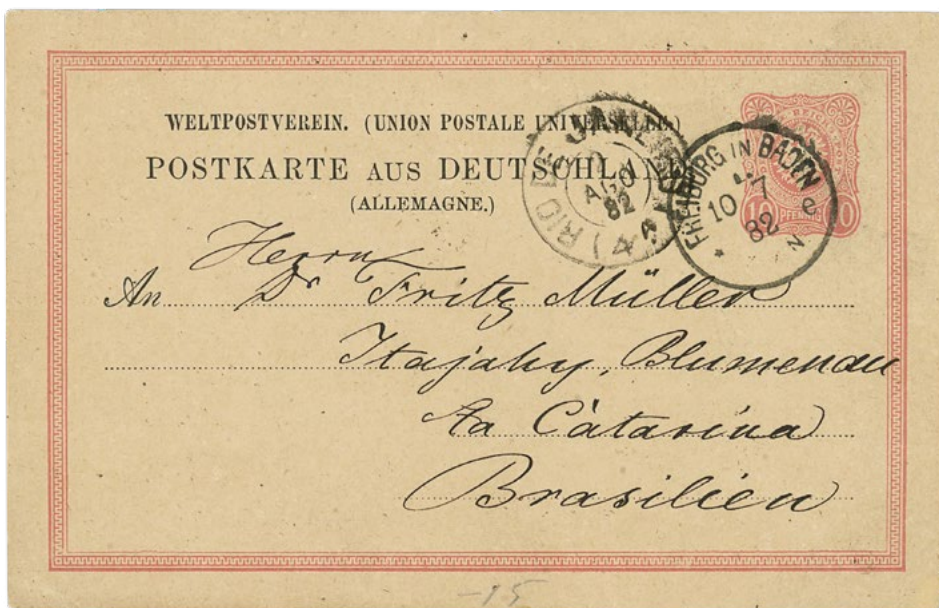 WELTPOSTVEREIN. (UNION POSTALE UNIVERSELLE.)
POSTKARTE AUS DEUTSCHLAND
(ALLEMAGNE.)
RIO DE JANEIRO
AGO
82
FREIBURG IN BADEN
10 7
82
10 PFENNIG 10
Herrn
An Dr Fritz Müller
Itajahy, Blumenau
Sta Càtarina
Brasilien
-15